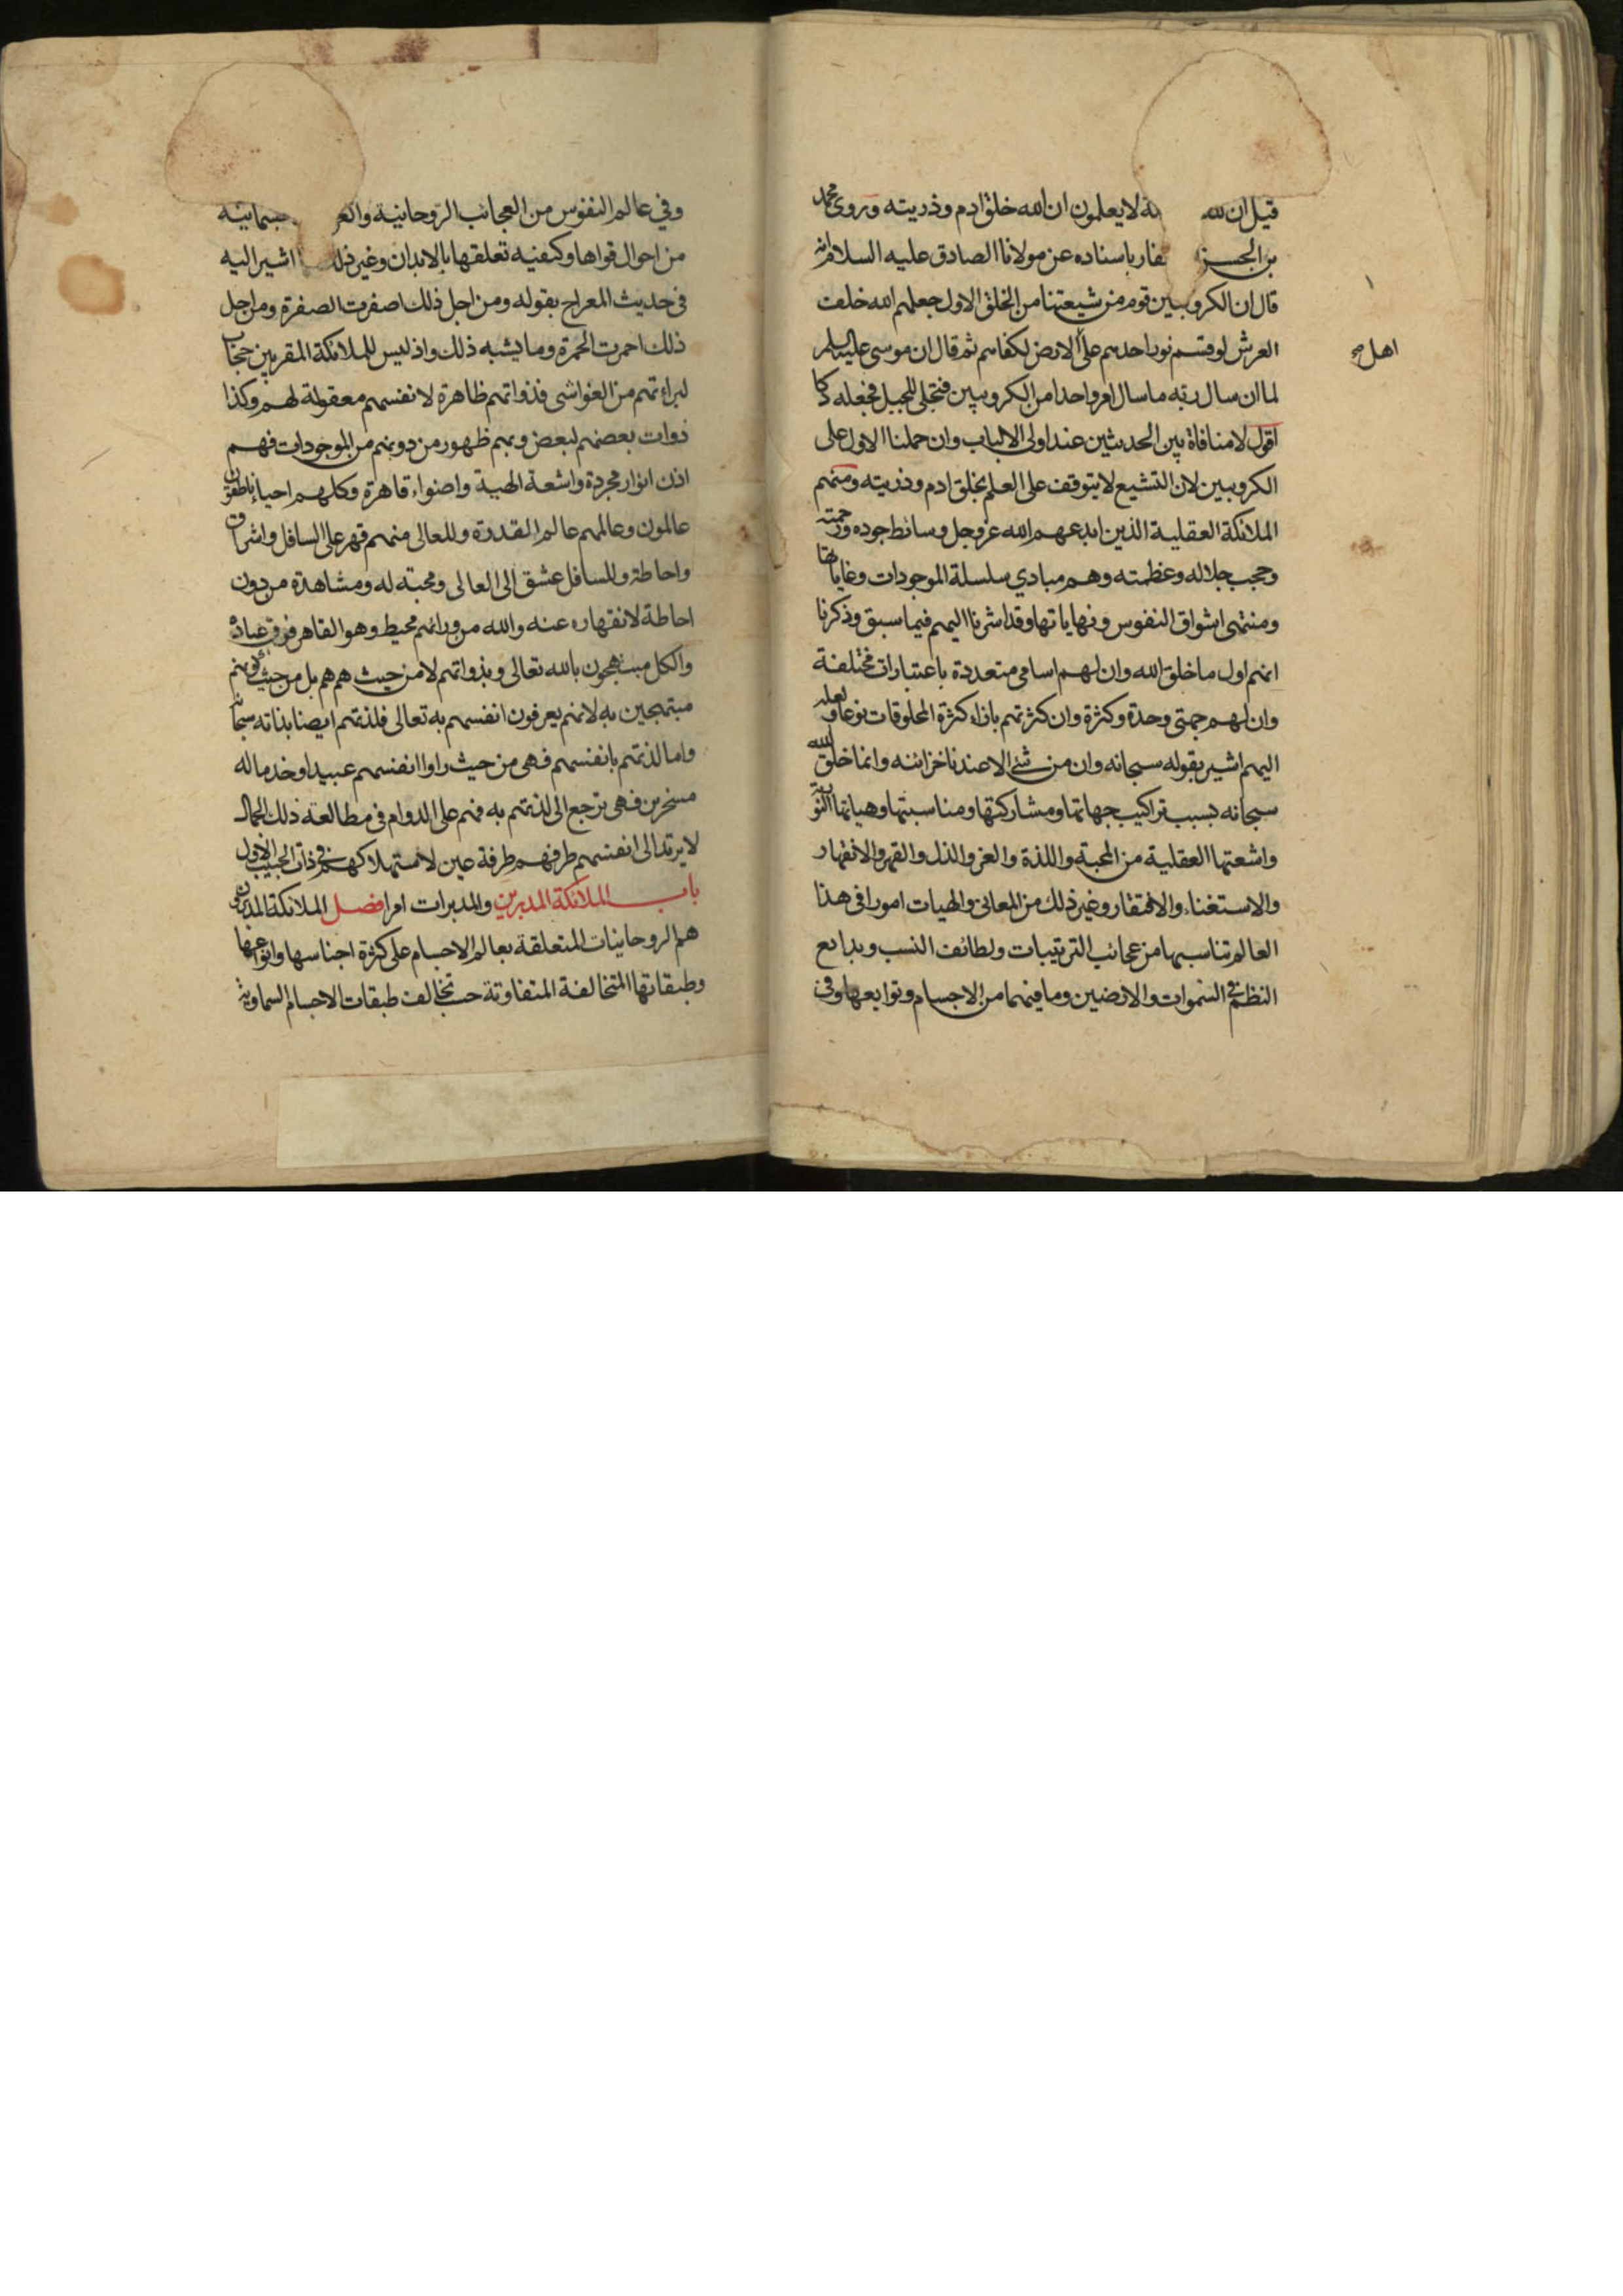 قيل ان لله لا يعلمون ان الله خلق ادم وذريته وروى محمد
بن الحسن باسناده عن مولانا الصادق عليه السلام انه
قال ان الكروبيين قوم من شيعتنا من الخلق الاول جعلهم الله خلف
العرش لو قسم نور احدهم على الارض لكفاهم ثم قال ان موسى عليه السلم
اهل صح
لما ان سال ربه ما سال امر واحدا من الكروبيين فتجلى للجبل فجعله دكا
اقول لا منافاة بين الحديثين عند اولى الالباب وان حملنا الاول على
الكروبيين لان التشيع لا يتوقف على العلم بخلق ادم وذريته ومنهم
الملائكة العقلية الذين ابدعهم الله عز وجل وسائط جوده ورحمته
وحجب جلاله وعظمته وهم مبادي سلسلة الموجودات وغاياتها
ومنتهى اشواق النفوس ونهاياتها وقد اشرنا اليهم فيما سبق وذكرنا
انهم اول ما خلق الله وان لهم اسامى متعددة باعتبارات مختلفة
وان لهم جهتى وحدة وكثرة وان كثرتهم بازاء كثرة المخلوقات نوعا و
اليهم اشير بقوله سبحانه وان من شئ الا عندنا خزائنه وانما خلق الله
سبحانه بسبب تراكيب جهاتها ومشاركتها ومناسبتها وهياتها النورية
واشعتها العقلية من المحبة واللذة والعز والذل والقهر والانقهار
والاستغناء والافتقار وغير ذلك من المعانى والهيات امورا فى هذا
العالم تناسبها من عجائب الترتيبات ولطائف النسب وبدايع
النظم فى السموات والارضين وما فيهما من الاجسام وتوابعها وفى
وفي عالم النفوس من العجائب الروحانية جسمانية
من احوال قواها وكيفيه تعلقها بالابدان وغير ذلك اشير اليه
فى حديث المعراج بقوله ومن اجل ذلك اصفرت الصفرة ومن اجل
ذلك احمرت الحمرة وما يشبه ذلك واذ ليس للملائكة المقربين حجاب
لبراءتهم من الغواشى فذواتهم ظاهرة لانفسهم معقولة لهم وكذا
ذوات بعضهم لبعض وبهم ظهور من دونهم من الموجودات فهم
اذن انوار مجردة واشعة الهية واضواء قاهرة وكلهم احياء ناطقون
عالمون وعالمهم عالم القدرة وللعالى منهم قهر على السافل واشراق
واحاطة وللسافل عشق الى العالى ومحبته له ومشاهدة من دون
احاطة لانقهاره عنه والله من ورائهم محيط وهو القاهر فوق عباده
والكل مبتهجون بالله تعالى وبذواتهم لا من حيث هم هم بل من حيث كونهم
مبتهجين به لانهم يعرفون انفسهم به تعالى فلذتهم ايضا بذاته سبحانه
واما لذتهم بانفسهم فهى من حيث راوا انفسهم عبيدا وخدما له
مسخرين فهى ترجع الى لذتهم به فهم على الدوام فى مطالعة ذلك الجمال
لا يرتد الى انفسهم طرفهم طرفة عين لاستهلاكهم فى ذات الحبيب الاول
باب الملائكة المدبرين والمدبرات امرا فصل الملائكة المدبرون
هم الروحانيات المتعلقة بعالم الاجسام على كثرة اجناسها وانواعها
وطبقاتها المتخالفة المتفاوتة حسب تخالف طبقات الاجسام السماوية